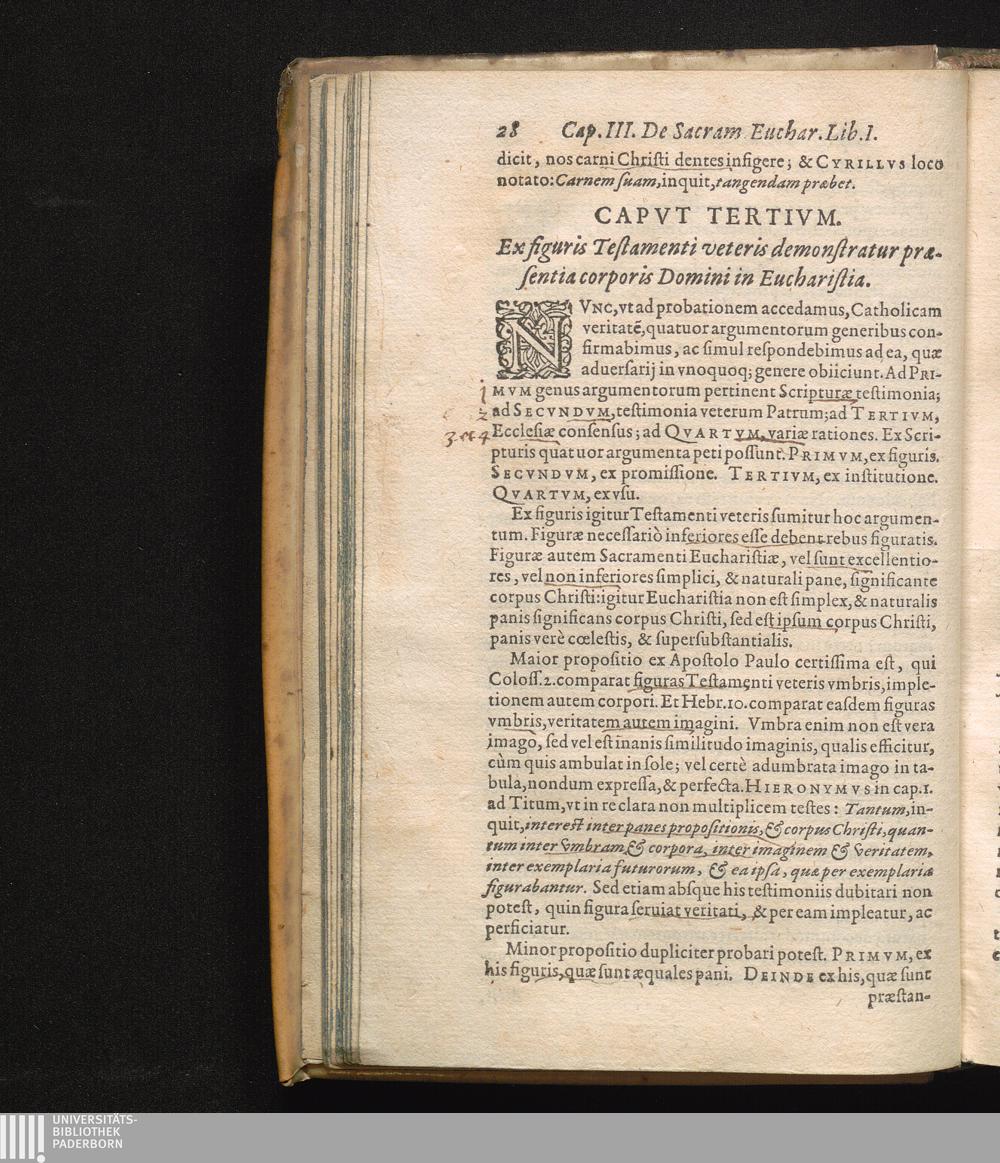 28 Cap. III. De Sacram. Euchar. Lib. I.
dicit, nos carni Christi dentes infigere; & CYRILLVS loco
notato: Carnem suam, inquit, tangendam præbet.
CAPVT TERTIVM.
Ex figuris Testamenti veteris demonstratur præ-
sentia corporis Domini in Eucharistia.
NVNC, vt ad probationem accedamus, Catholicam
veritatẽ, quatuor argumentorum generibus con-
firmabimus, ac simul respondebimus ad ea, quæ
aduersarij in vnoquoq; genere obijciunt. Ad PRI-
1 MVM genus argumentorum pertinent Scripturæ testimonia;
2 ad SECVNDVM, testimonia veterum Patrum; ad TERTIVM,
3 et 4 Ecclesiæ consensus; ad QVARTVM, variæ rationes. Ex Scri-
pturis quatuor argumenta peti possunt. PRIMVM, ex figuris.
SECVNDVM, ex promissione. TERTIVM, ex institutione.
QVARTVM, ex vsu.
Ex figuris igitur Testamenti veteris sumitur hoc argumen-
tum. Figuræ necessariò inferiores esse debent rebus figuratis.
Figuræ autem Sacramenti Eucharistiæ, vel sunt excellentio-
res, vel non inferiores simplici, & naturali pane, significante
corpus Christi: igitur Eucharistia non est simplex, & naturalis
panis significans corpus Christi, sed est ipsum corpus Christi,
panis verè cœlestis, & supersubstantialis.
Maior propositio ex Apostolo Paulo certissima est, qui
Coloss. 2. comparat figuras Testamenti veteris vmbris, imple-
tionem autem corpori. Et Hebr. 10. comparat easdem figuras
vmbris, veritatem autem imagini. Vmbra enim non est vera
imago, sed vel est inanis similitudo imaginis, qualis efficitur,
cùm quis ambulat in sole; vel certè adumbrata imago in ta-
bula, nondum expressa, & perfecta. HIERONYMVS in cap. 1.
ad Titum, vt in re clara non multiplicem testes: Tantum, in-
quit, interest inter panes propositionis, & corpus Christi, quan-
tum inter vmbram, & corpora, inter imaginem & veritatem,
inter exemplaria futurorum, & ea ipsa, quæ per exemplaria
figurabantur. Sed etiam absque his testimoniis dubitari non
potest, quin figura seruiat veritati, & per eam impleatur, ac
perficiatur.
Minor propositio dupliciter probari potest. PRIMVM, ex
his figuris, quæ sunt æquales pani. DEINDE ex his, quæ sunt
præstan-
UNIVERSITÄTS-
BIBLIOTHEK
PADERBORN